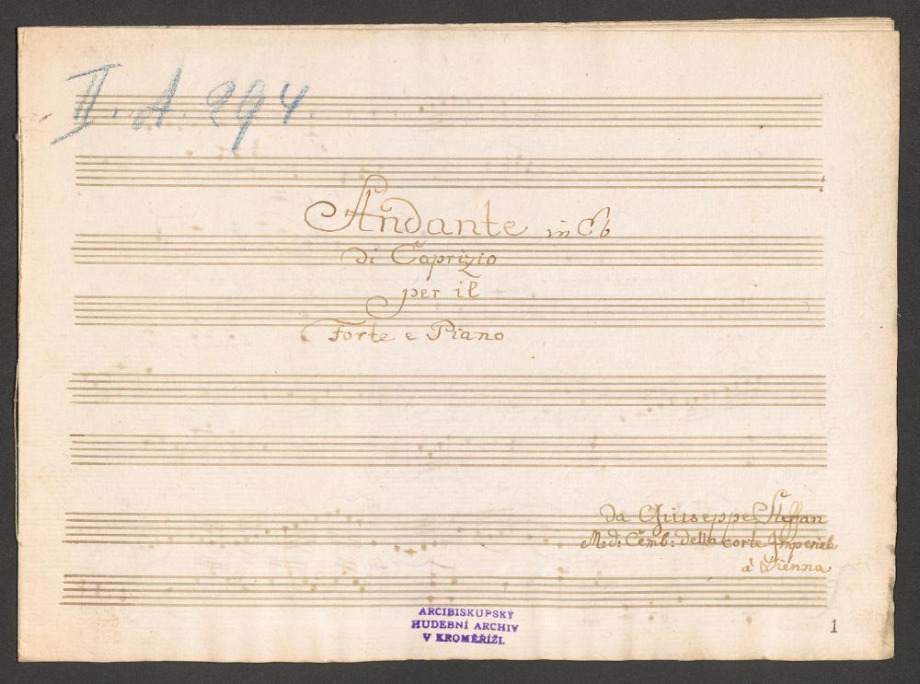 II. A. 294.
Andante in Eb
di Caprizio
per il
Forte e Piano
da Giuseppe Steffan
M.d: Cemb: della corte Imperiale
à Vienna
ARCIBISKUPSKÝ
HUDEBNÍ ARCHIV
V KROMĚŘÍŽI.
1